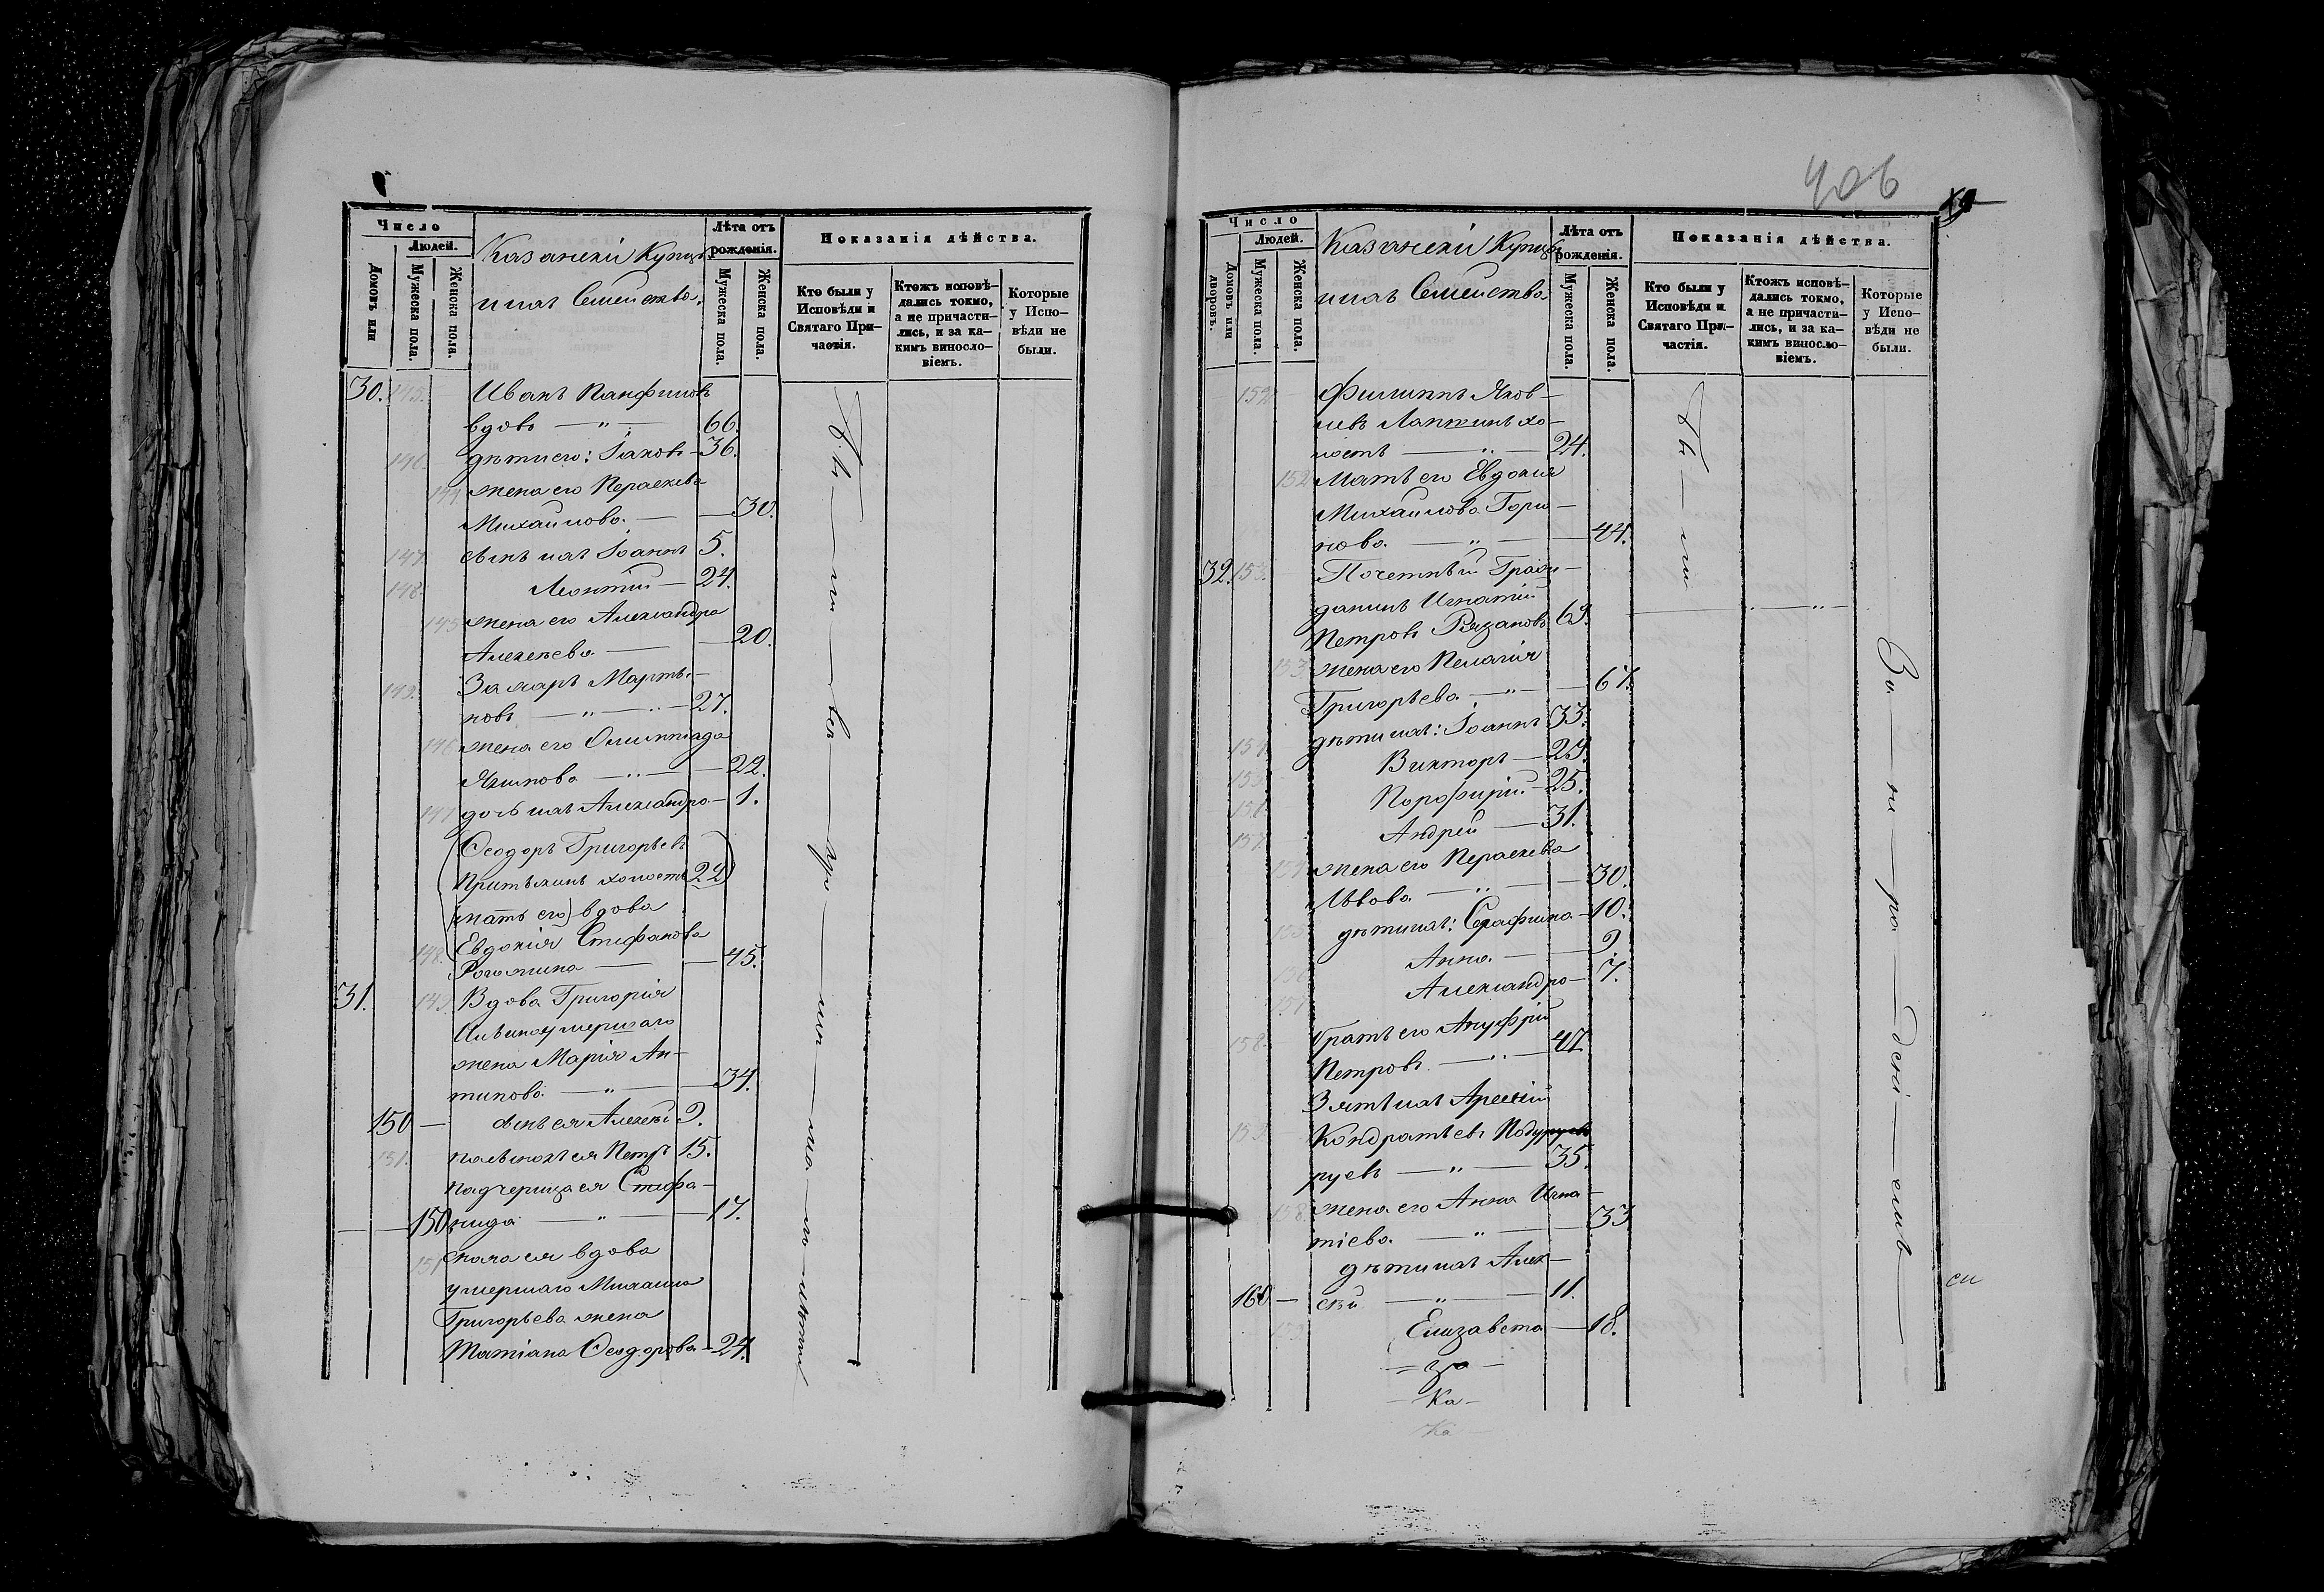 Число
Людей.
Домовъ или
Мужеска пола.
Женска пола.
Казанскіи Купцы
и ихъ Семейства.
Лѣта отъ
рожденія.
Мужеска пола.
Женска пола.
Показанія дѣйства.
Кто были у
Исповѣди и
Святаго При-
частія.
Ктожъ исповѣ-
дались токмо,
а не причасти-
лись, и за ка-
кимъ виносло-
віемъ.
Которые
у Испо-
вѣди не
были.
30. 145. Иванъ Панфиловъ
вдовъ — " — 66.
146. дѣти его: Іаковъ — 36.
144 жена его Параскева
Михаилова — 30.
147. сынъ ихъ Іоаннъ 5.
148. Леонтій — 24.
145 жена его Александра
Алексѣева — 20.
149. Захаръ Марты-
новъ — " — 27.
146 жена его Олимпіада
Якимова — " — 22.
147 дочь ихъ Александра — 1.
(Ѳеодоръ Григорьевъ
холостъ 22)
(мать его) вдова
148. Евдокія Стефанова
Рогожина — 45.
31. 149. Вдова Григорія
умершаго
жена Марія Ан-
типова — " — 34.
150 — сынъ ея Алексѣй 9.
151. ея Петръ 15.
падчерица ея Стефа-
150 нида — " — 17.
151 сноха ея вдова
умершаго Михаила
Григорьева жена
Татіана Ѳеодорова — 24.
406
Число
Людей.
Домовъ или
дворовъ.
Мужеска пола.
Женска пола.
Казанскіи Купцы
и ихъ Семейства.
Лѣта отъ
рожденія.
Мужеска пола.
Женска пола.
Показанія дѣйства.
Кто были у
Исповѣди и
Святаго При-
частія.
Ктожъ исповѣ-
дались токмо,
а не причасти-
лись, и за ка-
кимъ виносло-
віемъ.
Которые
у Испо-
вѣди не
были.
152 Филиппъ Яков-
левъ Лаптинъ хо-
лостъ — " — 24.
152 Мать его Евдокія
Михаилова Горш-
кова — " — 44.
32. 153. Почетный Граж-
данинъ Игнатій
Петровъ Рязановъ 69.
153 жена его Пелагія
Григорьева — " — 67.
154. дѣти ихъ: Іоаннъ 33.
155 Викторъ — 29.
156 Порфирій — 25.
157 Андрей — 31.
154 жена его Параскева
Львова — " — 30.
155 дѣти ихъ: Серафима — 10.
156 Анна — 9.
157 Александра — 7.
158 братъ его Ануфрій
Петровъ — " — 47.
Зять ихъ Арсеній
159 Кондратьевъ
руевъ — " — 35.
158 жена его Анна Игна-
тіева — " — 33
дѣти ихъ Алек-
160 — сѣй — " — 11.
Елизавета — 18.
Ка
Ка